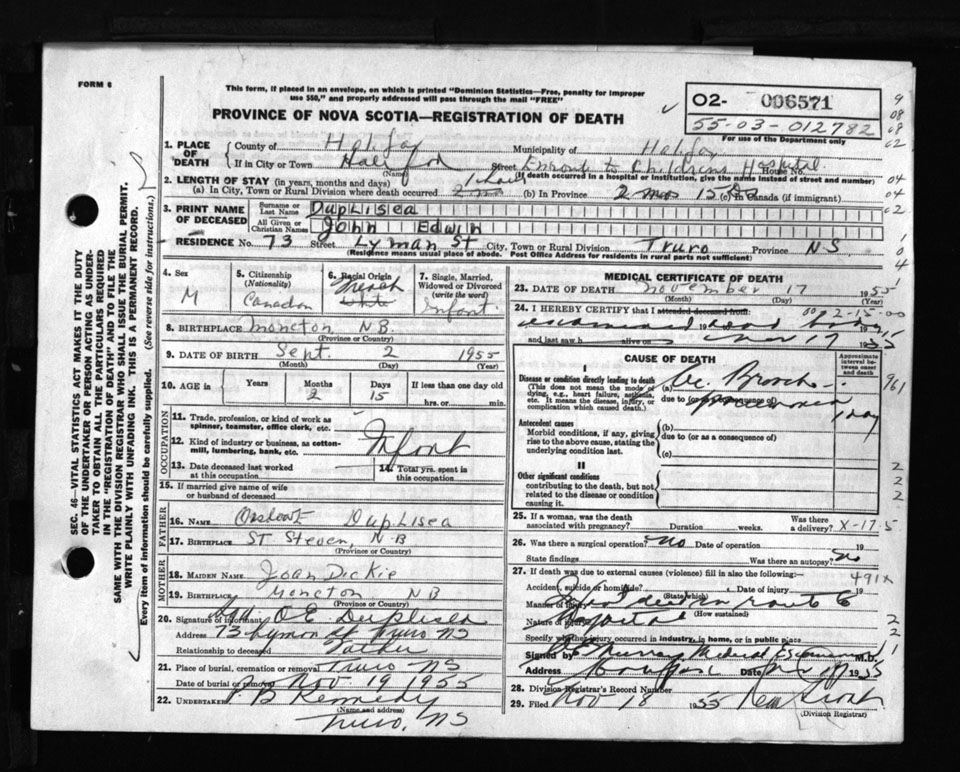 FORM 8
This form, if placed in an envelope, on which is printed "Dominion Statistics—Free, penalty for improper
use $50," and properly addressed will pass through the mail "FREE"
PROVINCE OF NOVA SCOTIA—REGISTRATION OF DEATH
O2- 006571
55-03-012782
For use of the Department only
1. PLACE OF DEATH
County of Halifax Municipality of Halifax
If in City or Town Halifax Street Enroute to Childrens Hospital House No.
(Name) (If death occurred in a hospital or institution, give the name instead of street and number)
2. LENGTH OF STAY (in years, months and days)
(a) In City, Town or Rural Division where death occurred (b) In Province 2 mos 15 ds (c) In Canada (if immigrant)
3. PRINT NAME OF DECEASED
Surname or Last Name Duplisea
All Given or Christian Names John Edwin
RESIDENCE No. 73 Street Lyman St City, Town or Rural Division Truro Province N.S.
(Residence means usual place of abode. Post Office Address for residents in rural parts not sufficient)
4. Sex
M
5. Citizenship (Nationality)
Canadian
6. Racial Origin
French
White
7. Single, Married, Widowed or Divorced (write the word)
Infant
8. BIRTHPLACE Moncton NB.
(Province or Country)
9. DATE OF BIRTH Sept 2 1955
(Month) (Day) (Year)
10. AGE in Years Months Days If less than one day old
2 15 hrs. or min.
OCCUPATION
11. Trade, profession, or kind of work as spinner, teamster, office clerk, etc.
12. Kind of industry or business, as cotton-mill, lumbering, bank, etc. Infant
13. Date deceased last worked at this occupation
14. Total yrs. spent in this occupation
15. If married give name of wife or husband of deceased
FATHER
16. NAME Duplisea
17. BIRTHPLACE St Steven, N.B
(Province or Country)
MOTHER
18. MAIDEN NAME Joan Dickie
19. BIRTHPLACE Moncton NB
(Province or Country)
20. Signature of informant O E Duplisea
Address 73 Lyman St Truro NS
Relationship to deceased Father
21. Place of burial, cremation or removal Truro NS
Date of burial or removal Nov. 19 1955
22. UNDERTAKER Kennedy
(Name and address)
Truro, NS
MEDICAL CERTIFICATE OF DEATH
23. DATE OF DEATH November 17 1955
(Month) (Day) (Year)
24. I HEREBY CERTIFY that I attended deceased from:
examined dead body
and last saw h alive on Nov 17 1955
CAUSE OF DEATH
Approximate interval between onset and death
I
Disease or condition directly leading to death
(This does not mean the mode of dying, e.g., heart failure, asthenia, etc. It means the disease, injury, or complication which caused death.)
(a) Ac. Broncho-
due to (or as a consequence of) pneumonia
1 day
Antecedent causes
Morbid conditions, if any, giving rise to the above cause, stating the underlying condition last.
(b)
due to (or as a consequence of)
(c)
II
Other significant conditions
contributing to the death, but not related to the disease or condition causing it.
25. If a woman, was the death associated with pregnancy? Duration weeks. Was there a delivery?
X-17.5
26. Was there a surgical operation? No Date of operation 19
State findings Was there an autopsy? No
27. If death was due to external causes (violence) fill in also the following:
491X
Accident, suicide or homicide? Date of injury 19
(State which)
Manner of injury enroute to
(How sustained)
Nature of injury Hospital
Specify whether injury occurred in industry, in home, or in public place
Signed by Murray Medical Examiner M.D.
Address Date 1955
28. Division Registrar's Record Number
29. Filed Nov 18 1955
(Division Registrar)
SEC. 46—VITAL STATISTICS ACT MAKES IT THE DUTY
OF THE UNDERTAKER OR PERSON ACTING AS UNDER-
TAKER TO OBTAIN ALL THE PARTICULARS REQUIRED
IN THE "REGISTRATION OF DEATH" AND TO FILE THE
SAME WITH THE DIVISION REGISTRAR WHO SHALL ISSUE THE BURIAL PERMIT.
WRITE PLAINLY WITH UNFADING INK. THIS IS A PERMANENT RECORD.
Every item of information should be carefully supplied. (See reverse side for instructions.)